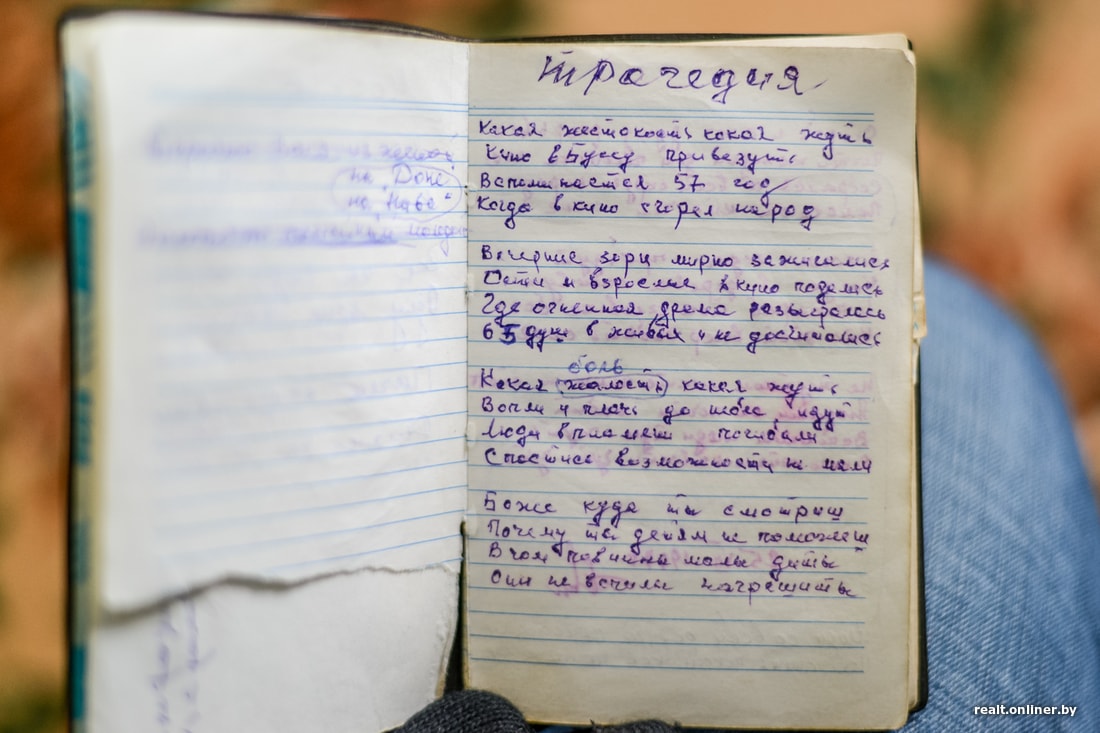 на Доне
на "Нава"
Трагедия
Какая жестокость какая жуть
Кино в Буссу привезуть
Вспоминается 57 год
Когда в кино сгорел народ
Вечерние зори мирно зажигались
Дети и взрослые в кино подались
Где огненная драма разыгралась
65 душ в живых не досчитались
боль
Какая жалость какая жуть
Вопли и плачь до неба идут
Люди в пламени погибали
Спастись возможности не мели
Боже куда ты смотриш
Почему ты детям не поможеш
В чом повинны малы диты
Они не вспели нагрешиты
realt.onliner.by